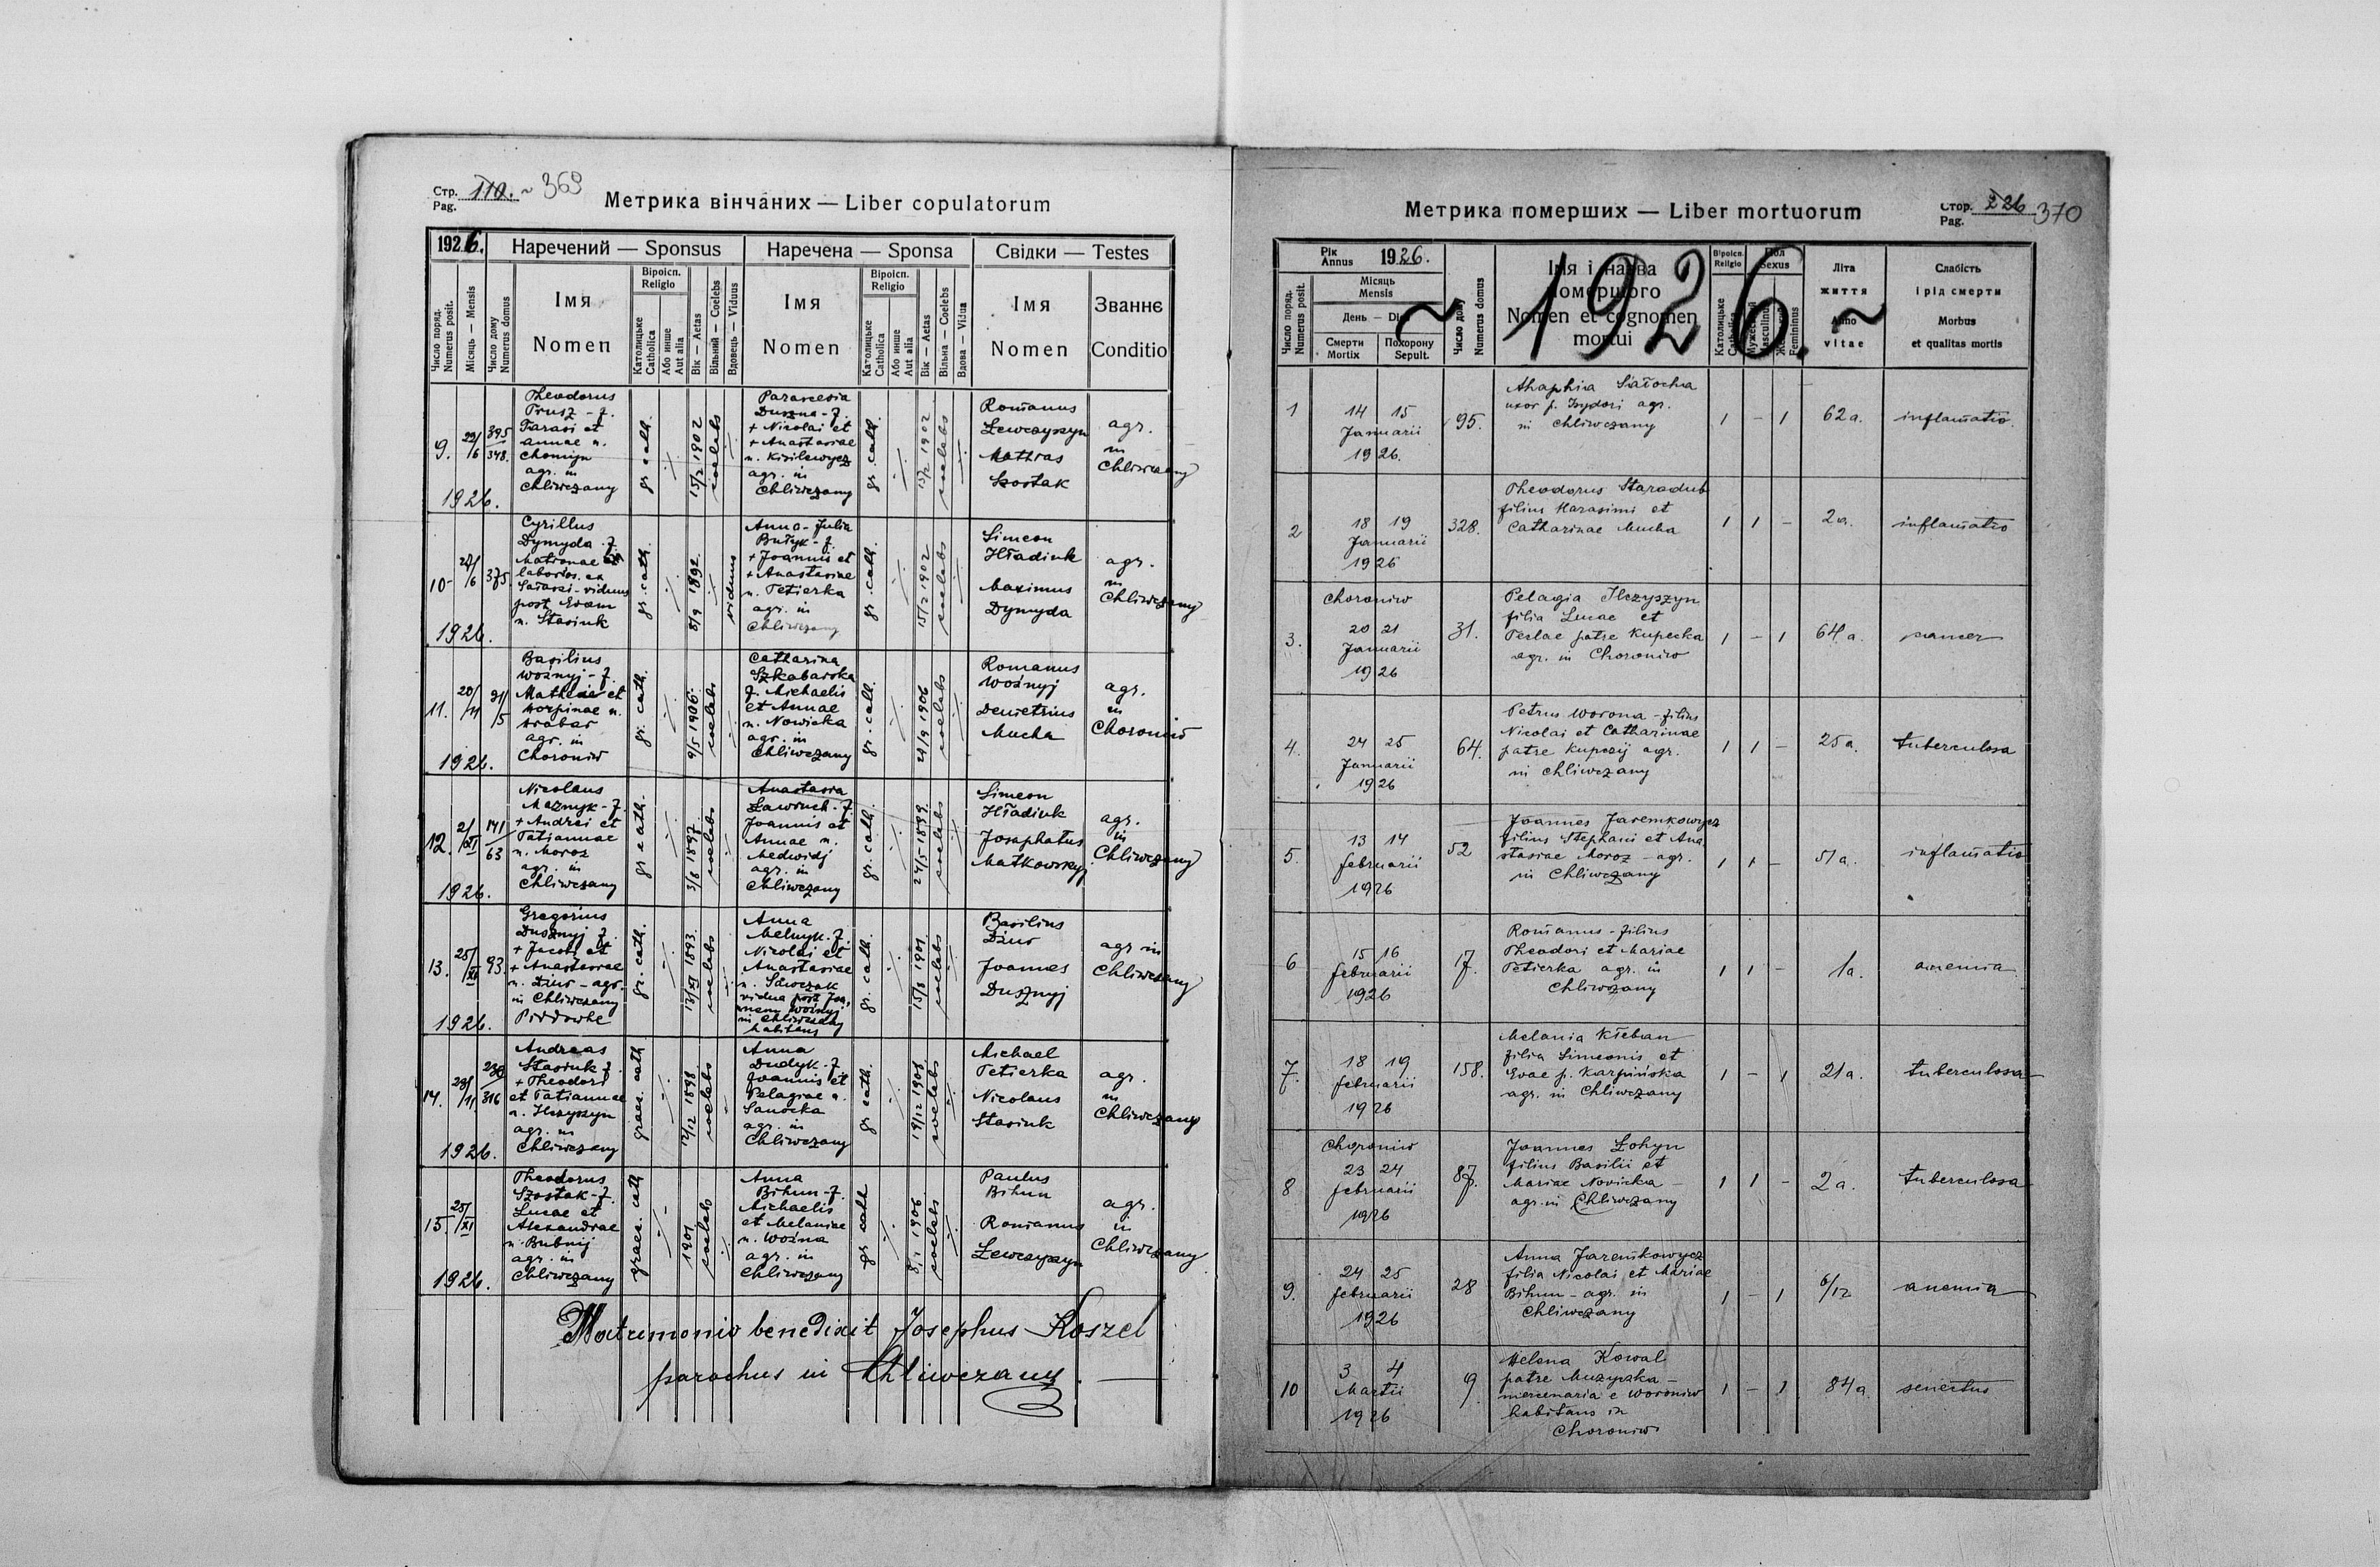 Стр. Pag. 110. ~ 369
Метрика вінчаних — Liber copulatorum
1926. Наречений — Sponsus Наречена — Sponsa Свідки — Testes
Число поряд. Numerus posit.
Місяць — Mensis
Число дому Numerus domus
Імя Nomen
Віроісп. Religio
Католицьке Catholica
Або инше Aut alia
Вік — Aetas
Вільний — Coelebs
Вдовець — Viduus
Імя Nomen
Віроісп. Religio
Католицьке Catholica
Або инше Aut alia
Вік — Aetas
Вільна — Coelebs
Вдова — Vidua
Імя Nomen
Званнє Conditio
9. 22/6 395 348.
1926.
Theodorus
Trusz - f.
Tarasi et
Annae n.
Chomyn
agr. in
Chliwczany
gr. cath.
15/2 1902
coelebs
Parascevia
Duszna - f.
+ Nicolai et
+ Anastasiae
n. Kisilewycz
agr. in
Chliwczany
gr. cath.
15/2 1902
coelebs
Romanus
Lewczyszyn
Mathias
Szostak
agr.
in
Chliwczany
10 27/6 375.
1926.
Cyrillus
Dymyda f.
Matronae
laborios. ex
viduus
post Evam
n. Stasiuk
gr. cath.
8/9 1892.
viduus
Anna-Julia
Butyk - f.
+ Joannis et
+ Anastasiae
n. Petierka
agr. in
Chliwczany
gr. cath.
15/2 1902
coelebs
Simeon
Hładiuk
Maximus
Dymyda
agr.
in
Chliwczany
11. 20/11 91/5
1926.
Basilius
Woźnyj - f.
Mathiae et
Horpinae n.
Hrabar
agr. in
Choroniw
gr. cath.
9/5 1906.
coelebs
Catharina
Szkabarska
f. Michaelis
et Annae
n. Nowicka
agr. in
Chliwczany
gr. cath.
24/9 1906
coelebs
Romanus
Woźnyj
Demetrius
Mucha
agr.
in
Choroniw
12. 2/XI 141/63
1926.
Nicolaus
Maznyk - f.
+ Andrei et
Tatiannae
n. Moroz
agr. in
Chliwczany
gr. cath.
3/8 1897.
coelebs
Anastasia
Ławruch - f.
Joannis et
Annae n.
Medwidj
agr. in
Chliwczany
gr. cath.
24/5 1899.
coelebs
Simeon
Hładiuk
Josaphatus
Matkowskyj
agr.
in
Chliwczany
13. 25/XI 93.
1926.
Gregorius
Dusznyj f.
+ Jacobi et
+ Anastasiae
n. Dziws - agr.
in Chliwczany
gr. cath.
12/XI 1893.
coelebs
Anna
Melnyk - f.
Nicolai et
Anastasiae
n. Sawczak
vidua post Joa,
nnem Woźnyj
in Chliwczany
habitans
gr. cath.
15/8 1901.
coelebs
Basilius
Joannes
Dusznyj
agr in
Chliwczany
14. 23/11 230 316
1926.
Andreas
Stasiuk f.
+ Theodori
et Tatiannae
n. Ilczyszyn
agr. in
Chliwczany
graec. cath.
12/12 1898
coelebs
Anna
Dudyk - f.
Joannis et
Pelagiae n.
Sanocka
agr. in
Chliwczany
gr. cath.
19/12 1908
coelebs
Michael
Petierka
Nicolaus
Stasiuk
agr.
in
Chliwczany
15. 25/XI
1926.
Theodorus
Szostak - f.
Lucae et
Alexandrae
n. Bubnij
agr. in
Chliwczany
graec. cath
1901
coelebs
Anna
Bihun - f.
Michaelis
et Melaniae
n. Woźna
agr. in
Chliwczany
gr. cath
8/1 1906
coelebs
Paulus
Bihun
Romanus
Lewczyszyn
agr.
in
Chliwczany
Matrimonio benedixit Josephus Koszel
parochus in Chliwczany.
Метрика померших — Liber mortuorum
Стор. Pag. 226 370
~ 1926. ~
Рік Annus 1926.
Число поряд. Numerus posit.
Місяць Mensis
День — Dies
Смерти Mortix
Похорону Sepult.
Число дому Numerus domus
Імя і назва
помершого
Nomen et cognomen
mortui
Віроісп. Religio
Католицьке Catholica
Пол Sexus
Мужеський Masculinus
Femininus
Літа
життя
Anno
vitae
Слабість
і рід смерти
Morbus
et qualitas mortis
1 14 15 Januarii 1926. 95.
Ahaphia Sałocha
uxor p. Isydori agr.
in Chliwczany
1 - 1 62 a. inflamatio.
2 18 19 Januarii 1926 328.
Theodorus Staradub
filius Harasimi et
Catharinae Mucha
1 1 - 2 a. inflamatio
3. Choroniw 20 21 Januarii 1926 31.
Pelagia Ilczyszyn
filia Lucae et
Teclae patre Kupecka
agr. in Choroniw
1 - 1 64 a. cancer
4. 24 25 Januarii 1926 64.
Petrus Worona - filius
Nicolai et Catharinae
patre Kupczij agr.
in Chliwczany
1 1 - 25 a. tuberculosa
5. 13 14 februarii 1926 52
Joannes Jaremkowycz
filius Stephani et Ana
stasiae Moroz - agr.
in Chliwczany
1 1 - 51 a. inflamatio
6 15 16 februarii 1926 17.
Romanus - filius
Theodori et Mariae
Petierka agr. in
Chliwczany
1 1 - 1 a. anemia
7. 18 19 februarii 1926 158.
Melania Kłeban
filia Simeonis et
Evae p. Karpińska
agr. in Chliwczany
1 - 1 21 a. tuberculosa
8 Choroniw 23 24 februarii 1926 87.
Joannes Łohyn
filius Basilii et
Mariae Novicka -
agr. in Chliwczany
1 1 - 2 a. tuberculosa
9. 24 25 februarii 1926 28
Anna Jaremkowycz
filia Nicolai et Mariae
Bihun - agr. in
Chliwczany
1 - 1 6/12 anemia
10 3 4 Martii 1926 9.
Helena Kowal
patre Muzyczka -
mercenaria e Woroniw
habitans in
Choroniw
1 - 1 84 a. senectus